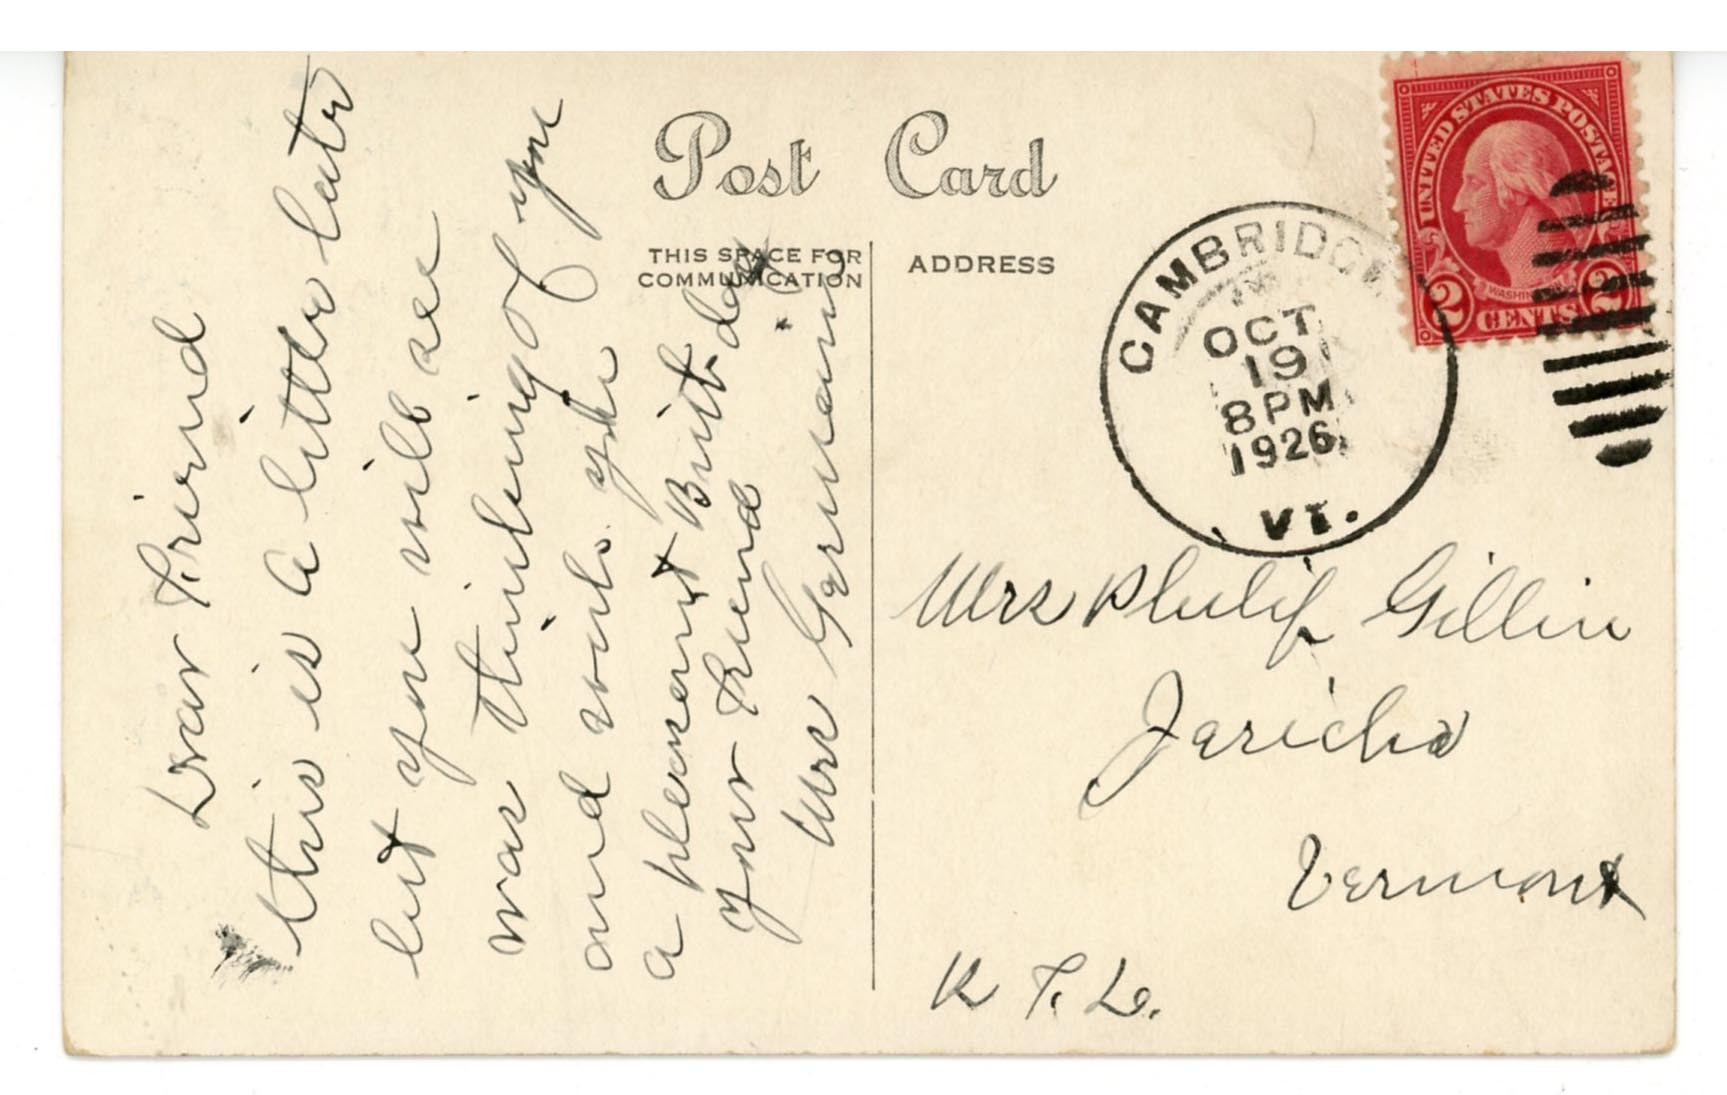 Post Card
THIS SPACE FOR
COMMUNICATION
ADDRESS
Dear Friend
this is a little late
but you will see
was thinking of you
and wish you
a pleasent Birt day
your Friend
Mrs Germain
UNITED STATES POSTAGE
WASHINGTON
2 CENTS 2
CAMBRIDGE
OCT
19
8 PM
1926
VT.
Mrs Philip Gillin
Jericho
Vermont
R F. D.